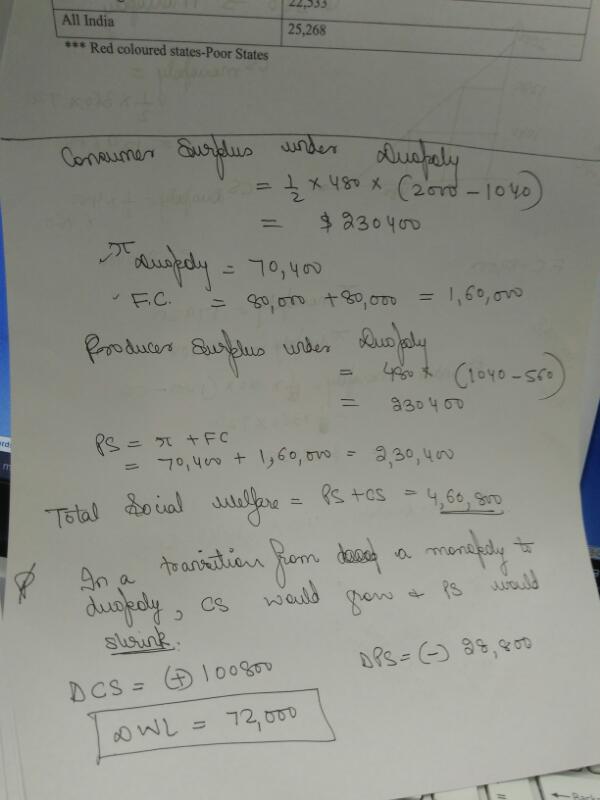 22,533
All India
25,268
*** Red coloured states-Poor States
Consumer Surplus under Duopoly
= 1/2 × 480 × (2000 - 1040)
= $ 230400
π Duopoly = 70,400
F.C. = 80,000 + 80,000 = 1,60,000
Producer Surplus under Duopoly
= 480 × (1040 - 560)
= 230400
PS = π + FC
= 70,400 + 1,60,000 = 2,30,400
Total Social Welfare = PS + CS = 4,60,800
In a transition from a monopoly to
duopoly, CS would grow & PS would
shrink.
DCS = (+) 100800 DPS = (-) 28,800
DWL = 72,000